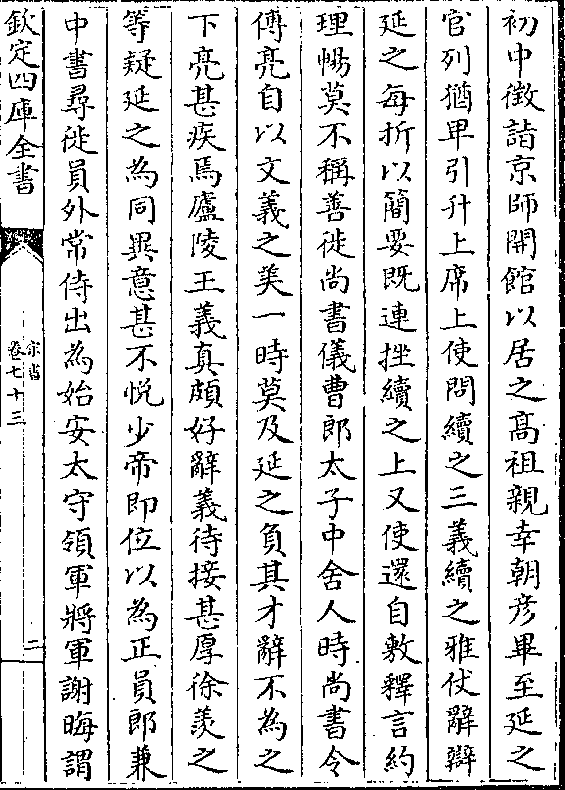 初中徵詣京師開館以居之髙祖親幸朝彦畢至延之
官列猶卑引升上席上使問續之三義續之雅仗辭辯
延之每折以簡要既連挫續之上又使還自敷釋言約
理暢莫不稱善徙尚書儀曹郎太子中舍人時尚書令
傅亮自以文義之美一時莫及延之負其才辭不為之
下亮甚疾焉廬陵王義真頗好辭義待接甚厚徐羨之
等疑延之為同異意甚不悦少帝即位以為正員郎兼
中書尋徙員外常侍出為始安太守領軍將軍謝晦謂
欽定四庫全書
宋書
卷七十三
二